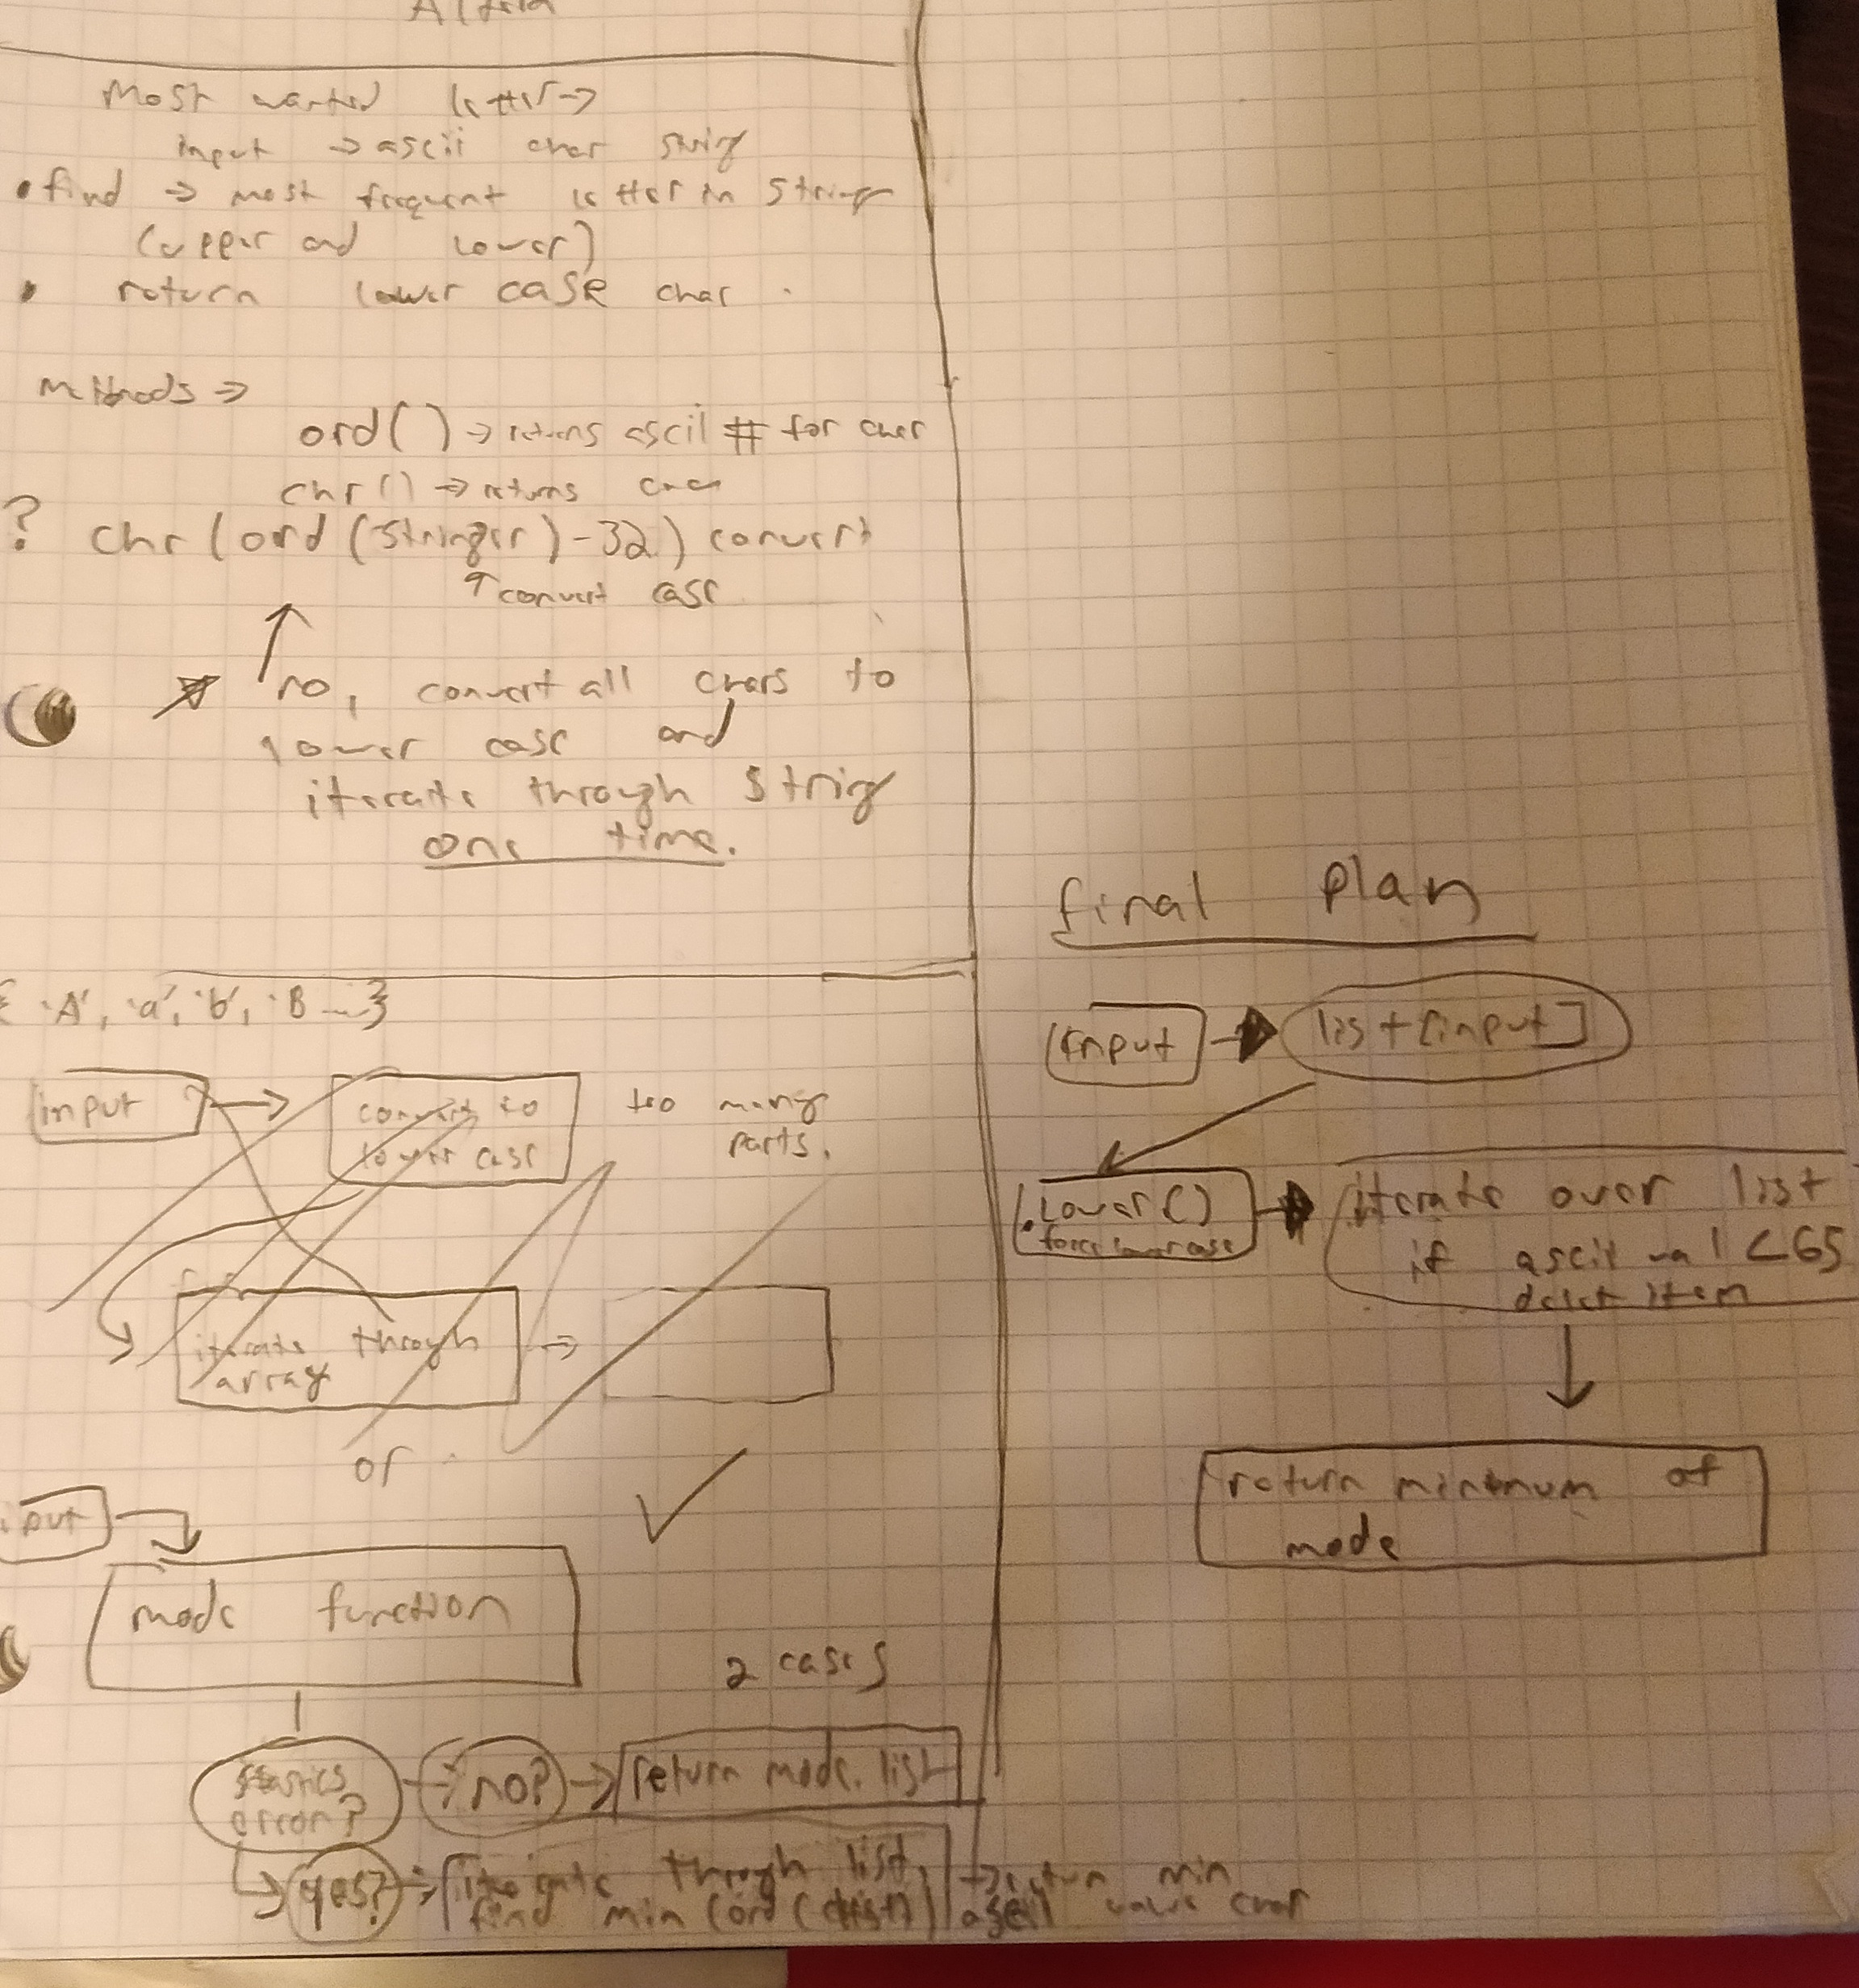 Most wanted letter →
input → ascii char string
• find → most frequent letter in string
(upper and lower)
• return lower case char.
methods →
ord() → returns ascii # for char
chr() → returns char
? chr(ord(stringer)-32) convert
↑ convert case
no, convert all chars to
lower case and
iterate through string
one time.
{ 'A', 'a', 'b', 'B ...}
input → convert to
lower case
too many
parts.
iterate through
array →
or
mode function
2 cases
error? → no? → return mode. list
yes? → iterate through list,
find min (ord( → return min
ascii value char
final plan
input → list[input]
.lower()
force lower case
→ iterate over list
if ascii val < 65
delet item
return minimum of
mode